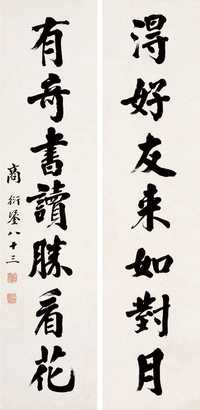 淂好友来如對月
有奇書讀勝看花
商衍鎏八十三